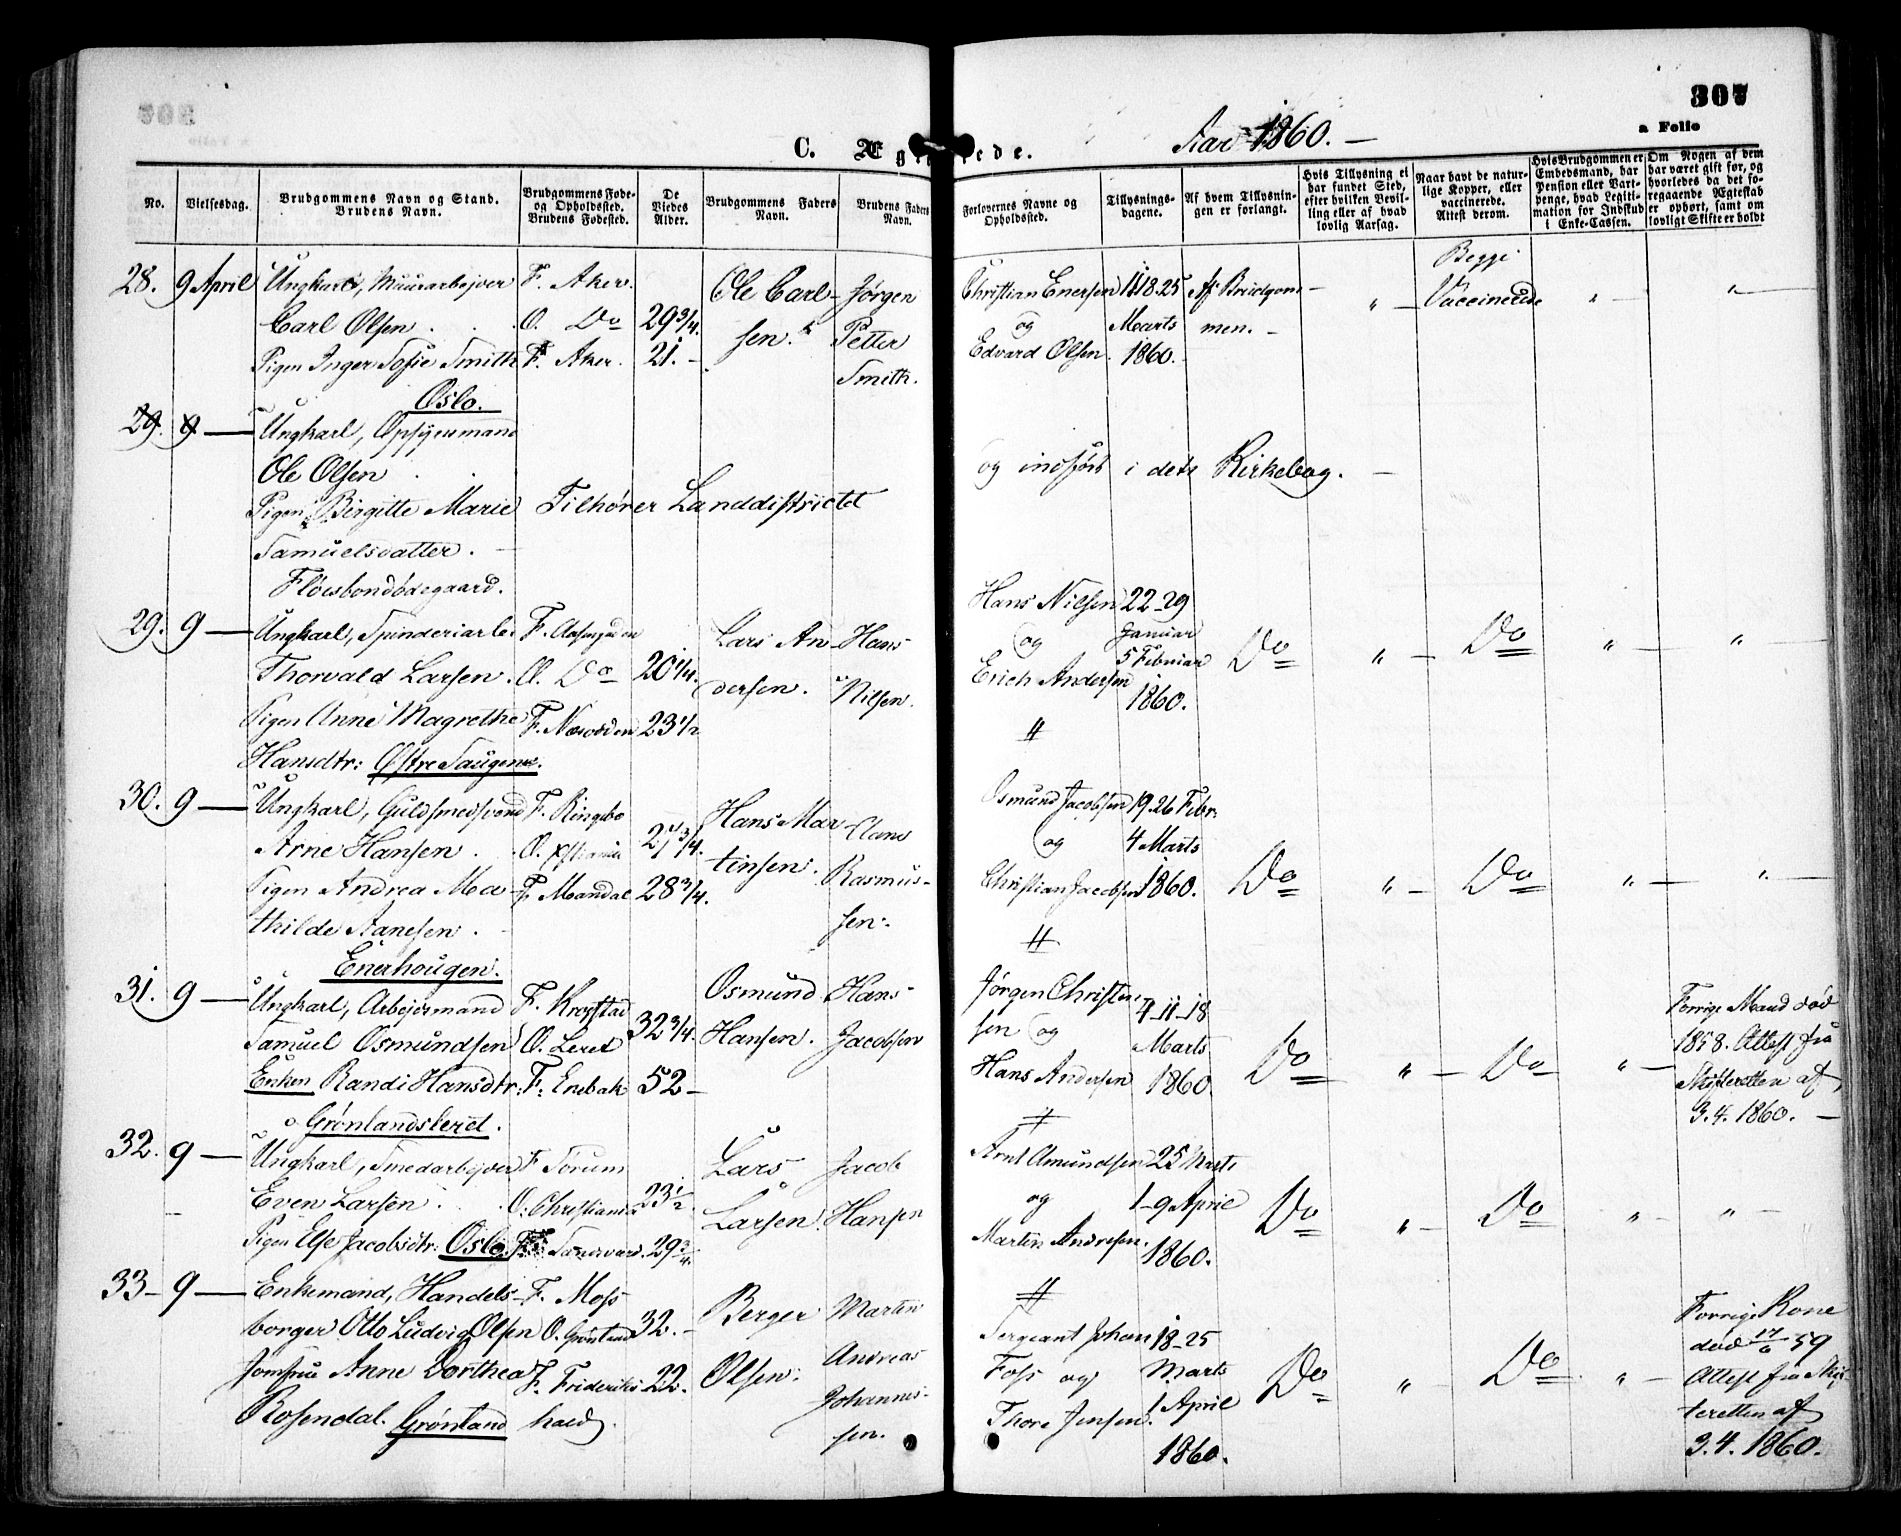 307
a Folio
C. Ægteviede.
Aar 1860. —
No.
Vielsesdag.
Brudgommens Navn og Stand.
Brudens Navn.
Brudgommens Føde-
og Opholdssted.
Brudens Fødested.
De
Viedes
Alder.
Brudgommens Faders
Navn.
Brudens Faders
Navn.
Forlovernes Navne og
Opholdssted.
Tillysnings-
dagene.
Af hvem Tillysnin-
gen er forlangt.
Hvis Tillysning ei
har fundet Sted,
efter hvilken Bevil-
ling eller af hvad
lovlig Aarsag.
Naar havt de natur-
lige Kopper, eller
vaccinerede.
Attest derom.
Hvis Brudgommen er
Embedsmand, har
Pension eller Vart-
penge, hvad Legiti-
mation for Indskud
i Enke-Cassen.
Om Nogen af dem
har været gift før, og
hvorledes da det fo-
regaaende Ægteskab
er ophørt, samt om
lovligt Skifte er holdt
28. 9 April Ungkarl, Muurarbejder F. Aker. Ole Carl- Jørgen Christian Enersen 11 18. 25 Af Brudgom- " Begge Vaccinerede " "
Carl Olsen . . O. Do 29 3/4. sen. Petter og Marts men. —
Pigen Inger Sofie Smith F. Aker. 21. — Smith. Edvard Olsen. 1860.
Oslo.
29. 9 — Ungkarl, Opsynsmand
Ole Olsen og indført i dets Kirkebog. —
Pigen Birgitte Marie Tilhører Landdistrictet
Samuelsdatter. —
Fløisbondødegaard.
29. 9 — Ungkarl, Spinderiarb. F. Hans Nilsen 22-29
Thorvald Larsen. O. Do 20 1/4. Lars An- Hans og Januar Do " Do " "
dersen. Nilsen. Erich Andersen 5 Februar
Pigen Anne Magrethe F. Næsodden 23 1/2 1860.
Hansdtr: Østre Saugene. #
30. 9 — Ungkarl, Guldsmedsvend F. Ringebo Hans Mar- Osmund Jacobsen 19. 26 Febr.
Arne Hansen. O. Xstiania 27 3/4. tinsen. og 4 Marts
Pigen Andrea Ma- F. Mandal 28 3/4. Rasmus- Christian Jacobsen 1860. Do " Do " "
thilde Aanesen . — sen. #
Enerhougen.
31. 9 — Ungkarl, Arbejdsmand F. Osmund Hans Jørgen Christen- 4-11-18 Forrige Mand død
Samuel Osmundsen O. Leret 32 3/4. Hansen. Jacobsen sen og Marts Do " Do " 1858. Attest fra
Enken Randi Hansdtr: F. Enebak 52 — Hans Andersen 1860. Skifteretten af
Grønlandsleret. # 3. 4. 1860. —
32. 9 — Ungkarl, Smedarbejder F. Sørum Lars Jacob Arnt Amundsen 25 Marts
Even Larsen . . O. Christiania 23 1/2. Larsen. Hansen og 1-9 April Do " Do " "
Pigen Else Jacobsdtr: Oslo. F. 29 3/4. Martin Andresen. 1860.
33 — 9 — Enkemand, Handels- F. Moss Berger Martin # Forrige Kone
borger Otto Ludvig Olsen O. Grønland 32. — Olsen. Andreas Sergeant Johan 18-25 død 17/6 59
Jomfrue Anne Dorthea F. Frideriks- 22. Johannes- Foss og Marts Do " Do " Attest fra Skif-
Rosendal. Grønland hald. sen. Thore Jensen. 1 April teretten af
1860. 3. 4. 1860.